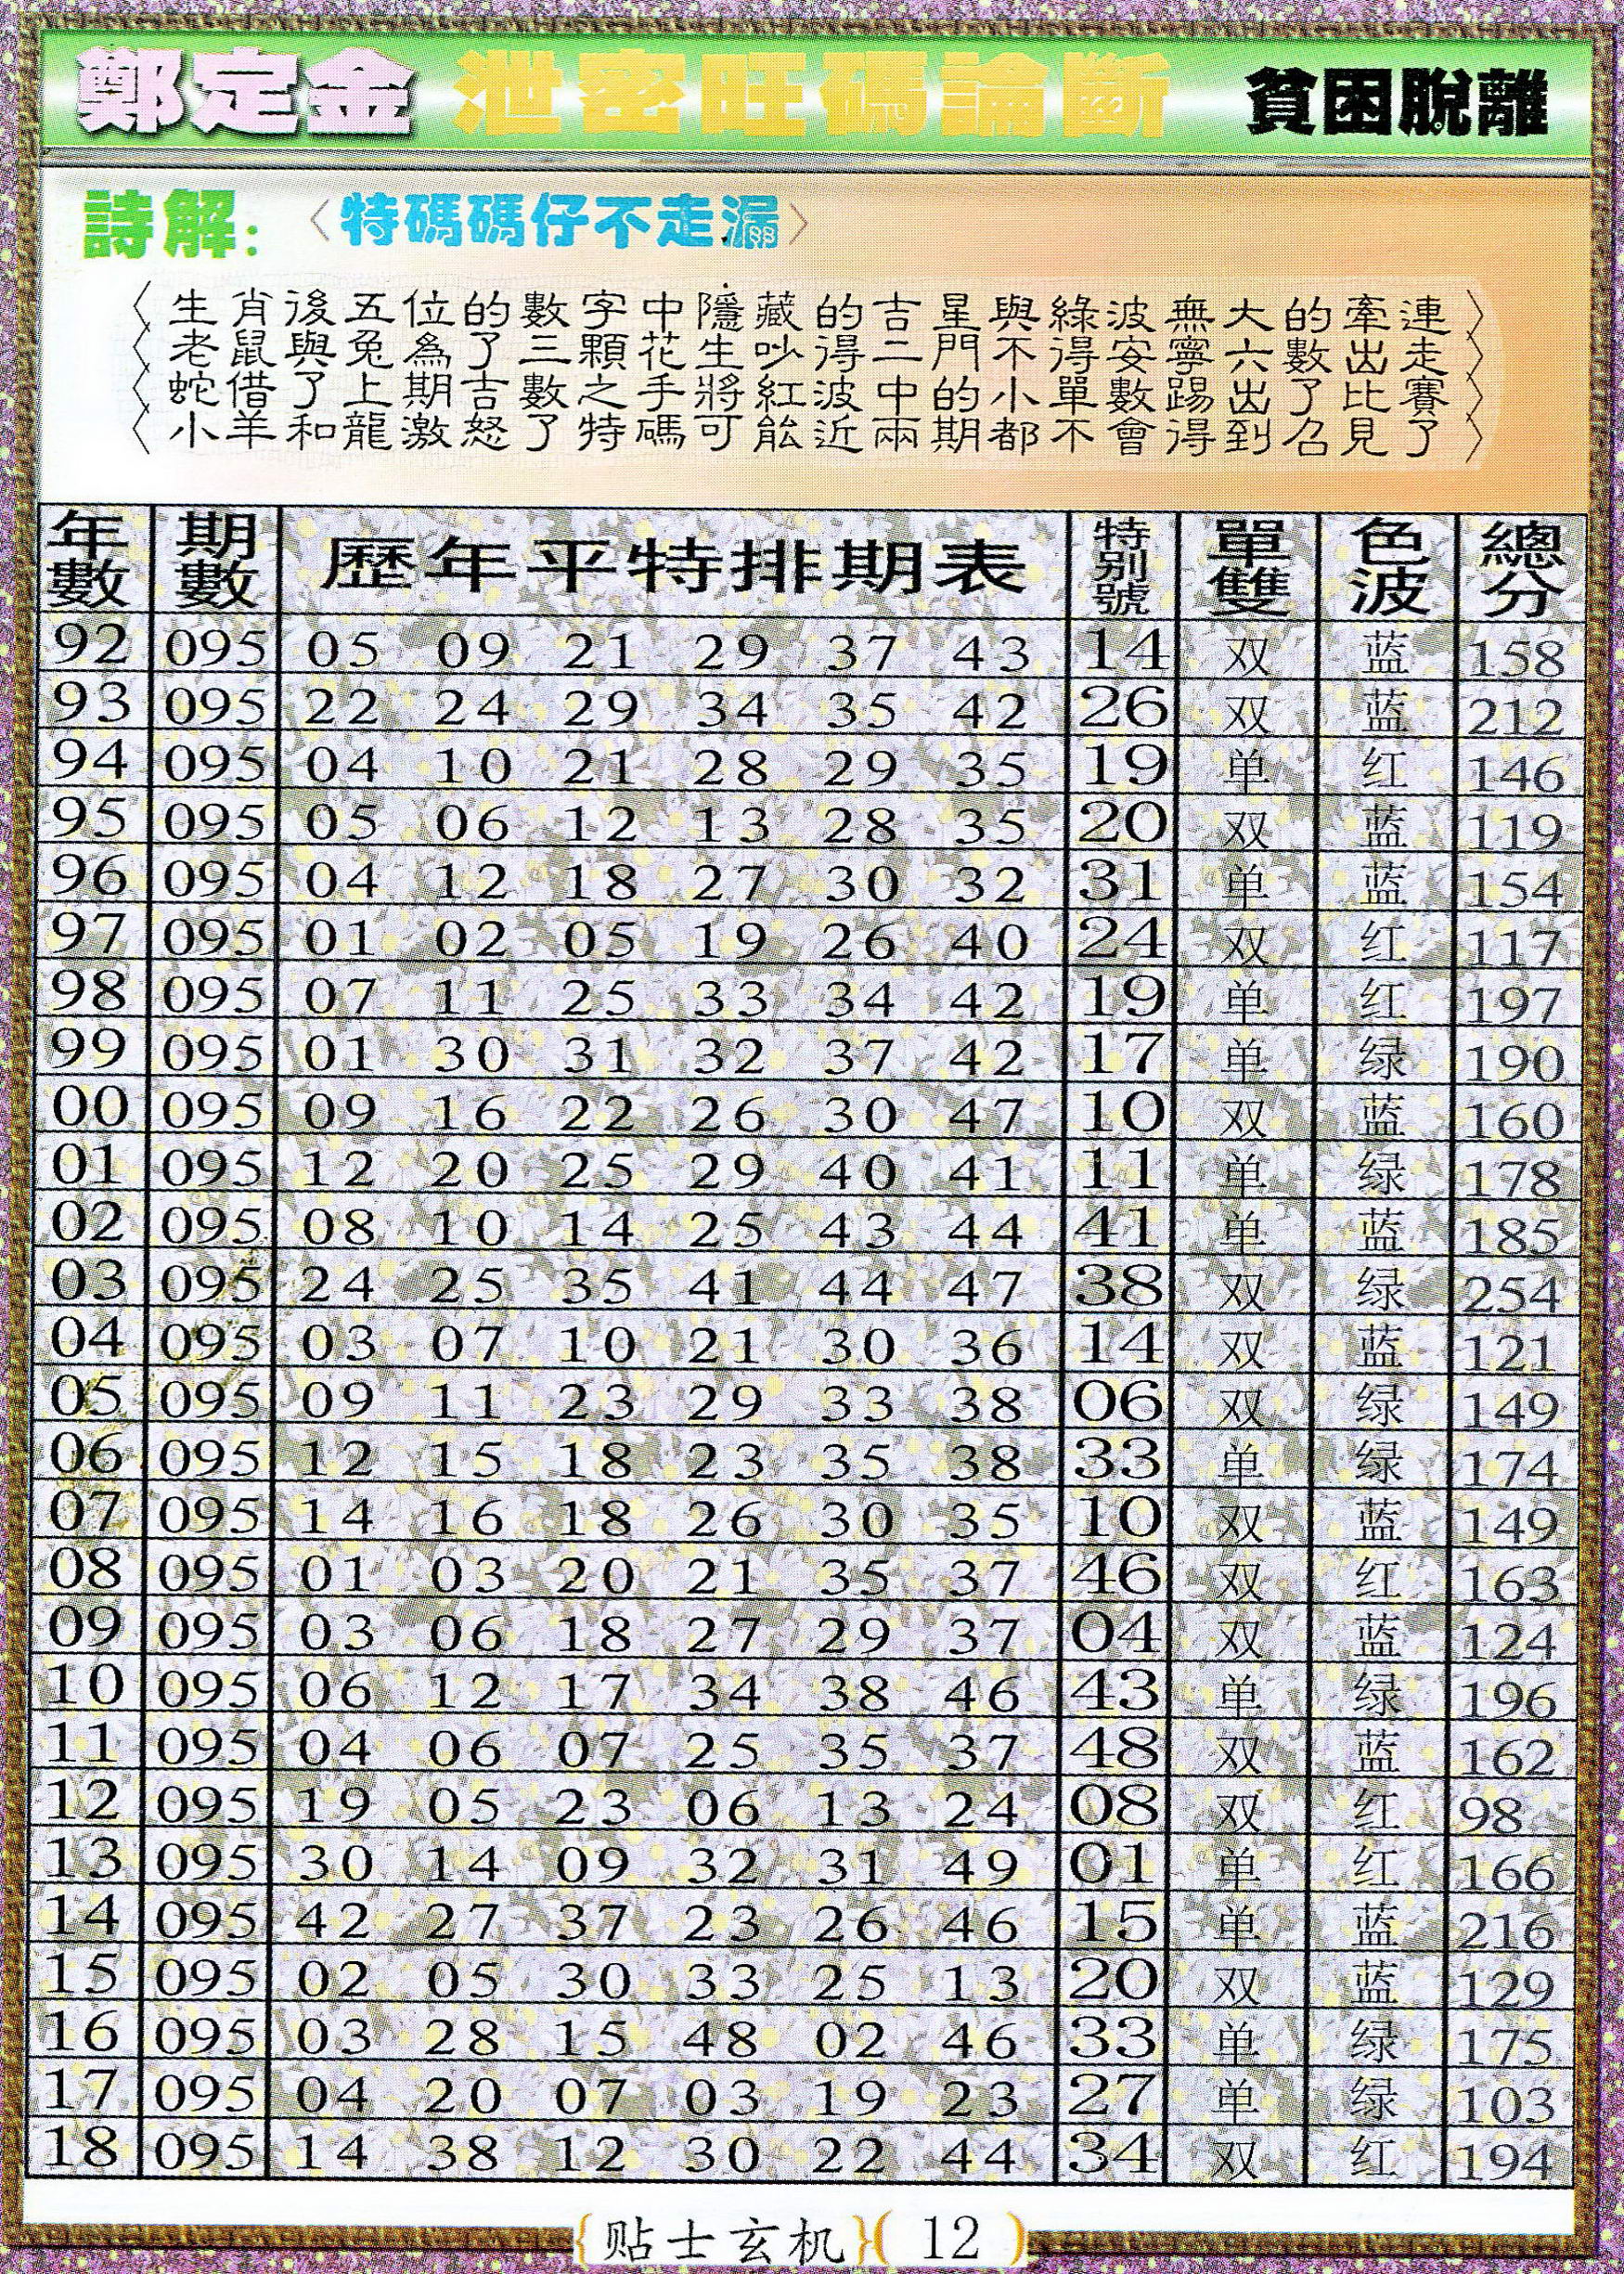 鄭定金 泄密旺碼論斷 貧困脫離
詩解: 〈特碼碼仔不走漏〉
〈生肖後五位的數字中隱藏的吉星與綠波無大的牽連〉
〈老鼠與兔為了三顆花生吵得二門不得安寧六數出走〉
〈蛇借了上期吉數之手將紅波中的小單數踢出了比賽〉
〈小羊和龍激怒了特碼可能近兩期都不會得到召見了〉
年數 期數 歷年平特排期表 特别號 單雙 色波 總分
92 095 05 09 21 29 37 43 14 双 蓝 158
93 095 22 24 29 34 35 42 26 双 蓝 212
94 095 04 10 21 28 29 35 19 单 红 146
95 095 05 06 12 13 28 35 20 双 蓝 119
96 095 04 12 18 27 30 32 31 单 蓝 154
97 095 01 02 05 19 26 40 24 双 红 117
98 095 07 11 25 33 34 42 19 单 红 197
99 095 01 30 31 32 37 42 17 单 绿 190
00 095 09 16 22 26 30 47 10 双 蓝 160
01 095 12 20 25 29 40 41 11 单 绿 178
02 095 08 10 14 25 43 44 41 单 蓝 185
03 095 24 25 35 41 44 47 38 双 绿 254
04 095 03 07 10 21 30 36 14 双 蓝 121
05 095 09 11 23 29 33 38 06 双 绿 149
06 095 12 15 18 23 35 38 33 单 绿 174
07 095 14 16 18 26 30 35 10 双 蓝 149
08 095 01 03 20 21 35 37 46 双 红 163
09 095 03 06 18 27 29 37 04 双 蓝 124
10 095 06 12 17 34 38 46 43 单 绿 196
11 095 04 06 07 25 35 37 48 双 蓝 162
12 095 19 05 23 06 13 24 08 双 红 98
13 095 30 14 09 32 31 49 01 单 红 166
14 095 42 27 37 23 26 46 15 单 蓝 216
15 095 02 05 30 33 25 13 20 双 蓝 129
16 095 03 28 15 48 02 46 33 单 绿 175
17 095 04 20 07 03 19 23 27 单 绿 103
18 095 14 38 12 30 22 44 34 双 红 194
{贴士玄机}(12)